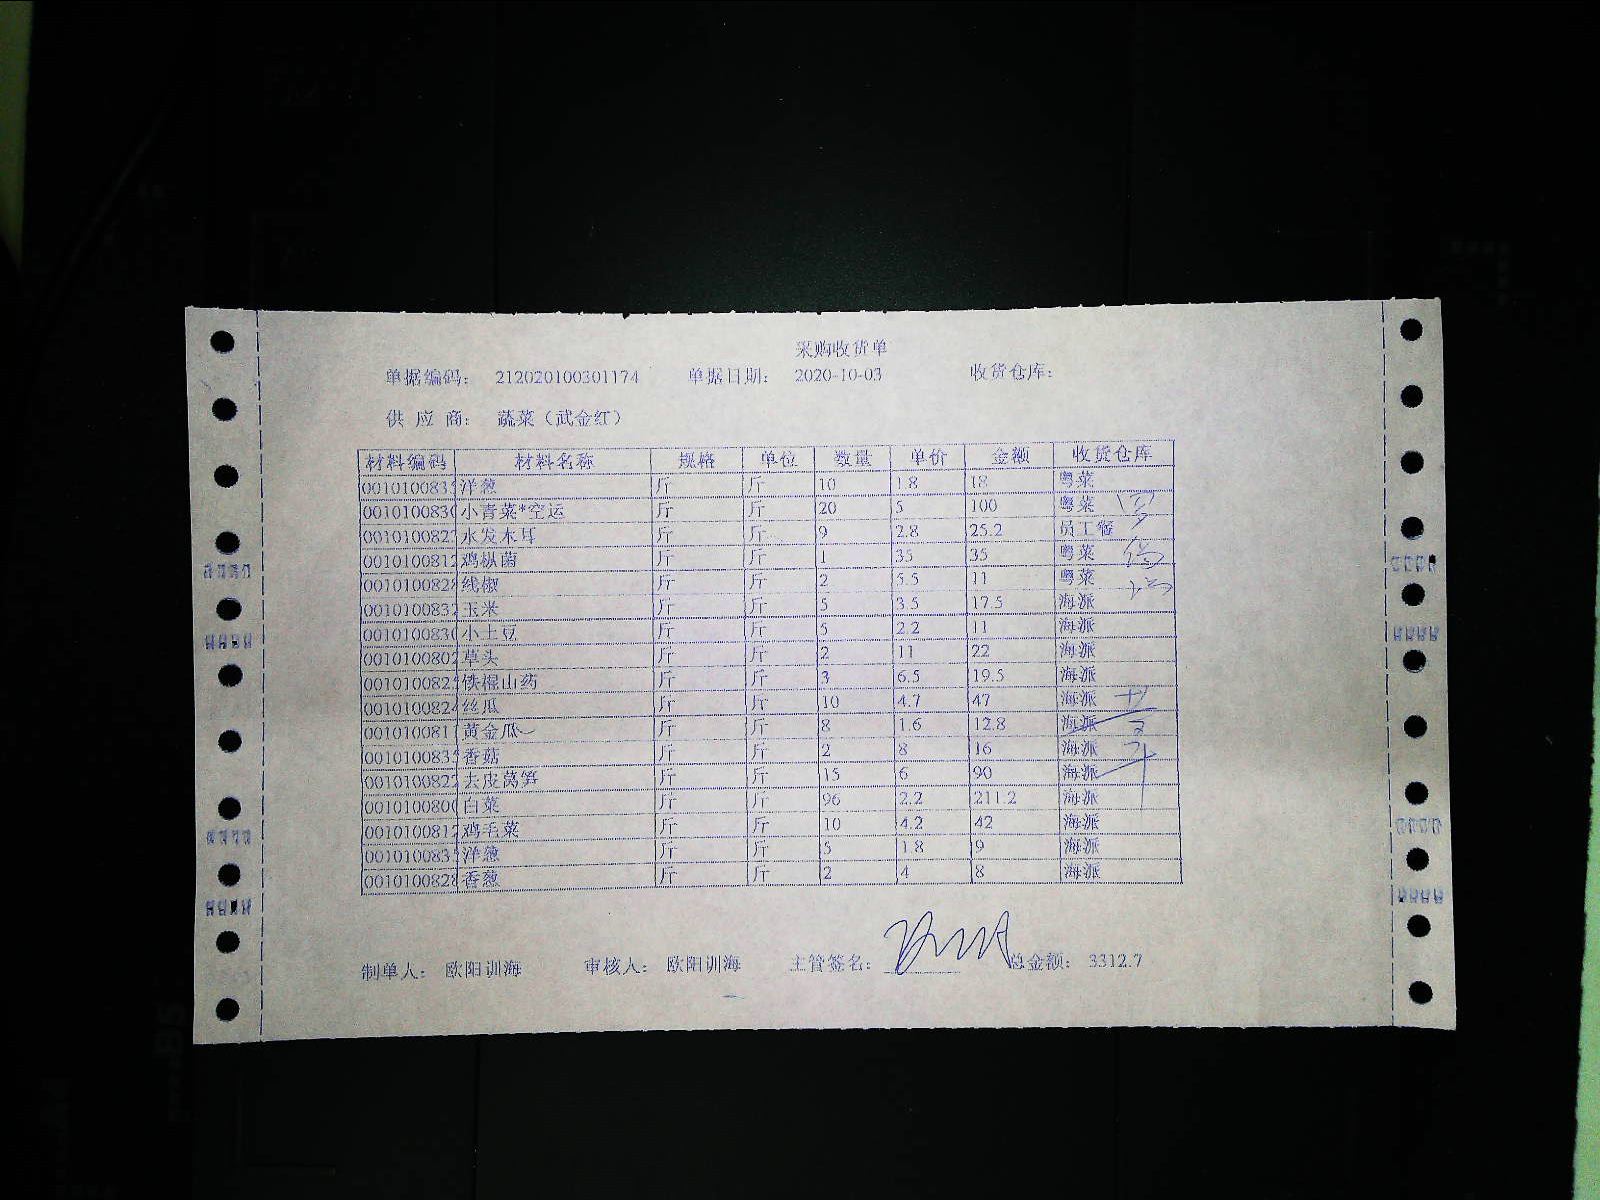 采购收货单
单据编码： 212020100301174 单据日期： 2020-10-03 收货仓库：
供 应 商： 蔬菜（武金红）
材料编码 材料名称 规格 单位 数量 单价 金额 收货仓库
001010083 洋葱 斤 斤 10 1.8 18 粤菜
001010083 小青菜*空运 斤 斤 20 5 100 粤菜
001010082 水发木耳 斤 斤 9 2.8 25.2 员工餐
001010081 鸡枞菌 斤 斤 1 35 35 粤菜
001010082 线椒 斤 斤 2 5.5 11 粤菜
001010083 玉米 斤 斤 5 3.5 17.5 海派
001010083 小土豆 斤 斤 5 2.2 11 海派
001010080 草头 斤 斤 2 11 22 海派
001010082 铁棍山药 斤 斤 3 6.5 19.5 海派
001010082 丝瓜 斤 斤 10 4.7 47 海派
001010081 黄金瓜 斤 斤 8 1.6 12.8 海派
001010083 香菇 斤 斤 2 8 16 海派
001010082 去皮莴笋 斤 斤 15 6 90 海派
001010080 白菜 斤 斤 96 2.2 211.2 海派
001010081 鸡毛菜 斤 斤 10 4.2 42 海派
001010083 洋葱 斤 斤 5 1.8 9 海派
001010082 香葱 斤 斤 2 4 8 海派
制单人： 欧阳训海 审核人： 欧阳训海 主管签名： 总金额： 3312.7